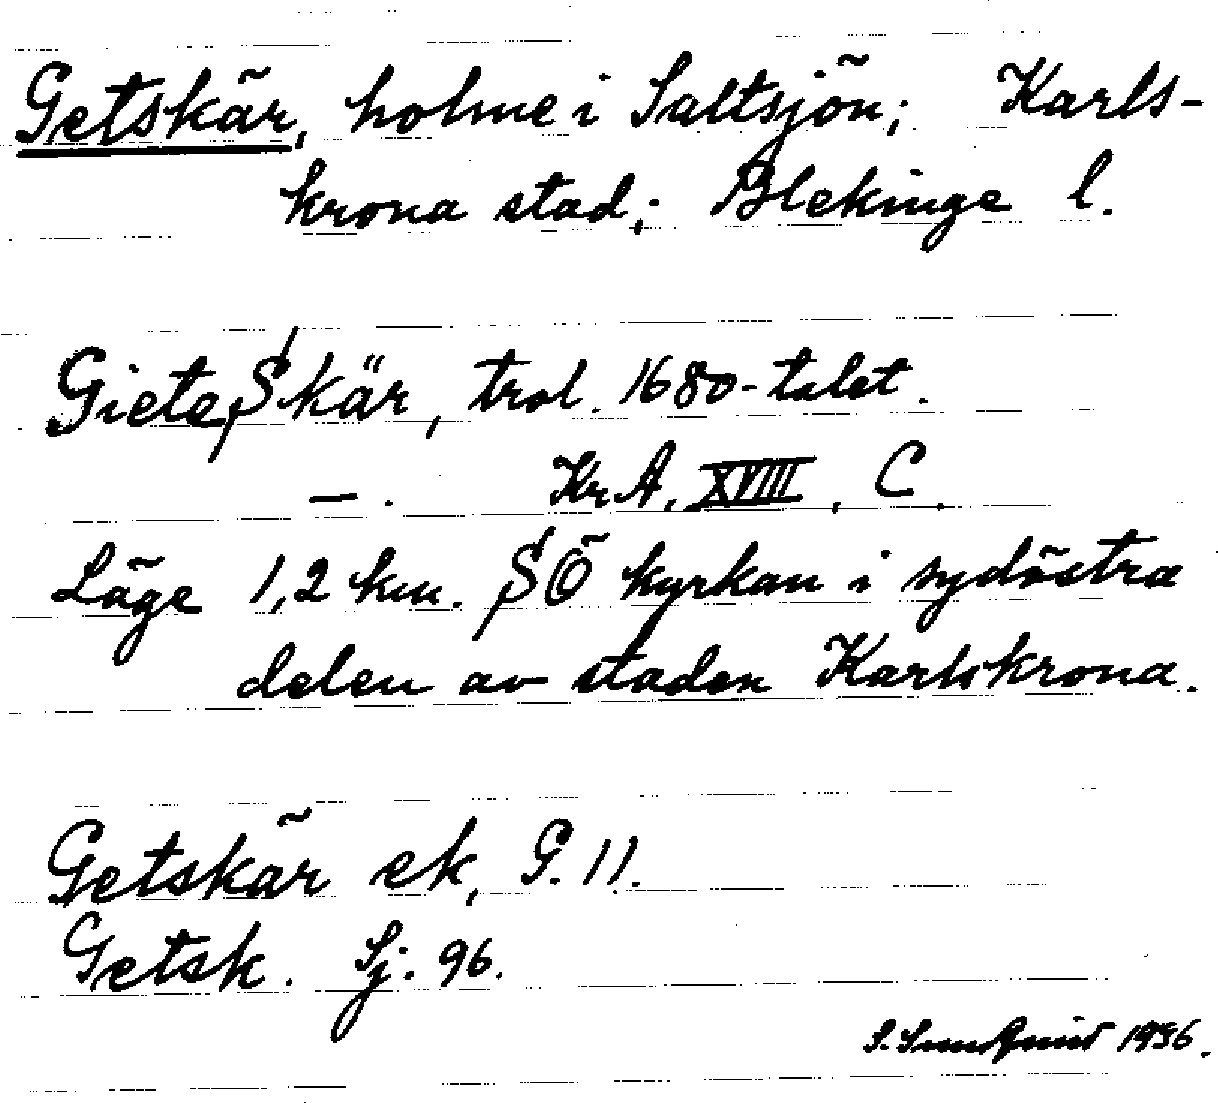 Getskär, holme i Saltsjön; Karls-
krona stad; Blekinge l.
Giete Skär, trol. 1680-talet.
—. Kr A, XVIII, C.
Läge 1,2 km. SÖ kyrkan i sydöstra
delen av staden Karlskrona.
Getskär ek, G. 11.
Getsk. Sj. 96.
S. Sundquist 1936.